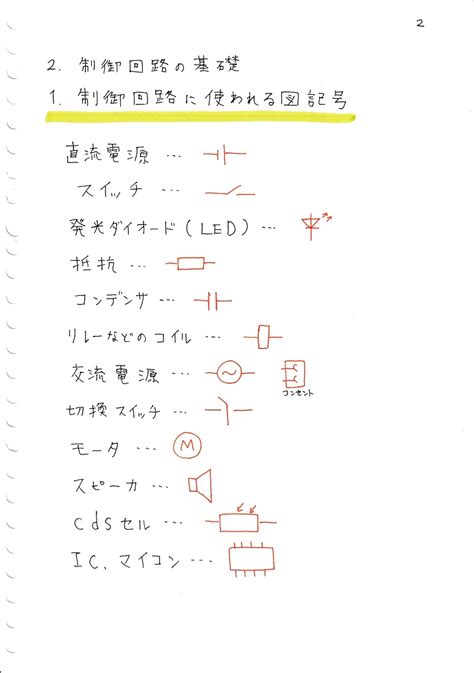 2
2. 制御回路の基礎
1. 制御回路に使われる図記号
直流電源 …
スイッチ …
発光ダイオード(LED) …
抵抗 …
コンデンサ …
リレーなどのコイル …
交流電源 … コンセント
切換スイッチ …
モータ … M
スピーカ …
cdsセル …
IC、マイコン …